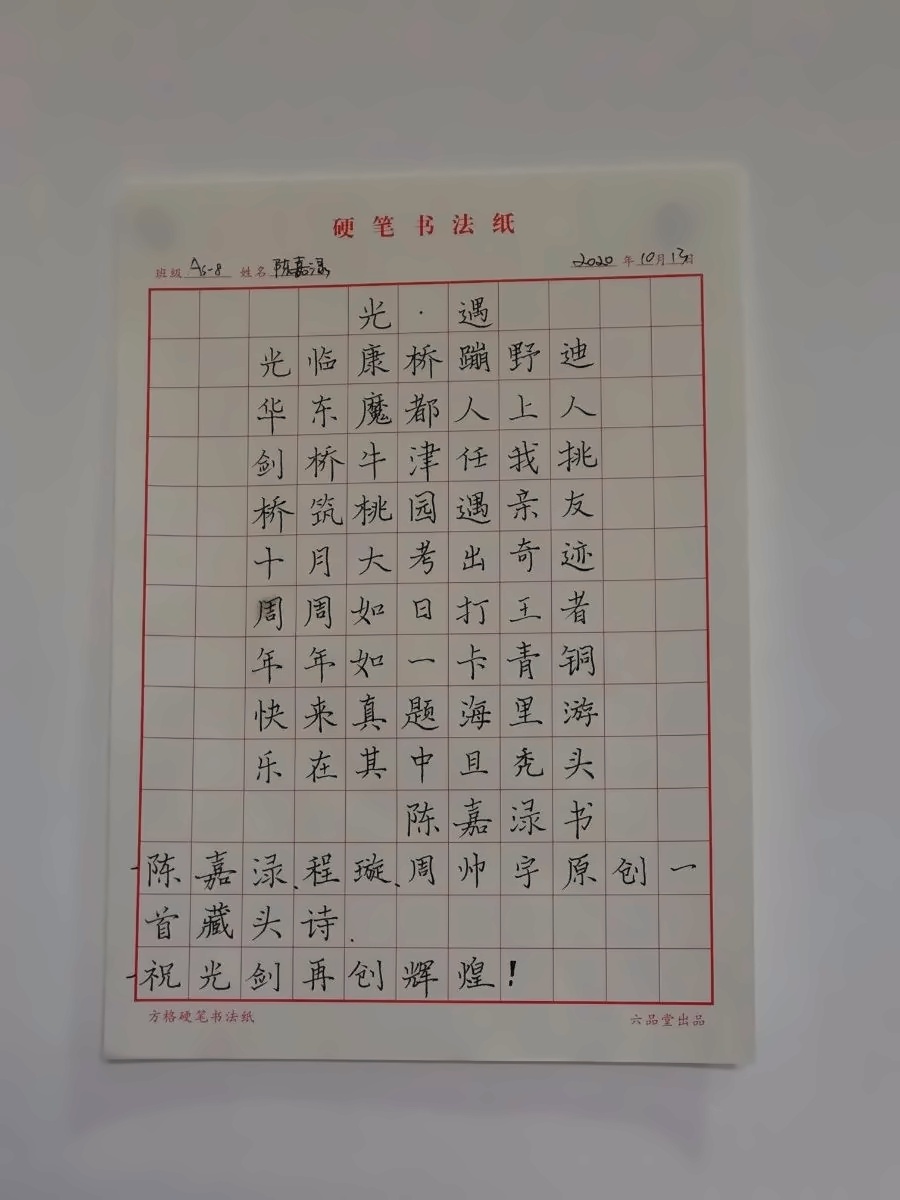 硬笔书法纸
班级 As-8 姓名 陈嘉渌 2020 年 10 月 13 日
光·遇
光临康桥蹦野迪
华东魔都人上人
剑桥牛津任我挑
桥筑桃园遇亲友
十月大考出奇迹
周周如日打王者
年年如一卡青铜
快来真题海里游
乐在其中且秃头
陈嘉渌书
-陈嘉渌、程璇、周帅宇原创一
首藏头诗.
-祝光剑再创辉煌!
方格硬笔书法纸 六品堂出品